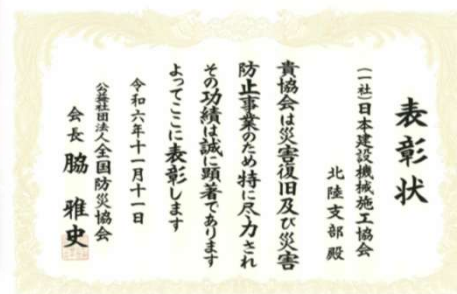 表彰状
(一社)日本建設機械施工協会
北陸支部殿
貴協会は災害復旧及び災害
防止事業のため特に尽力され
その功績は誠に顕著であります
よってここに表彰します
令和六年十一月十一日
公益社団法人全国防災協会
会長 脇 雅史